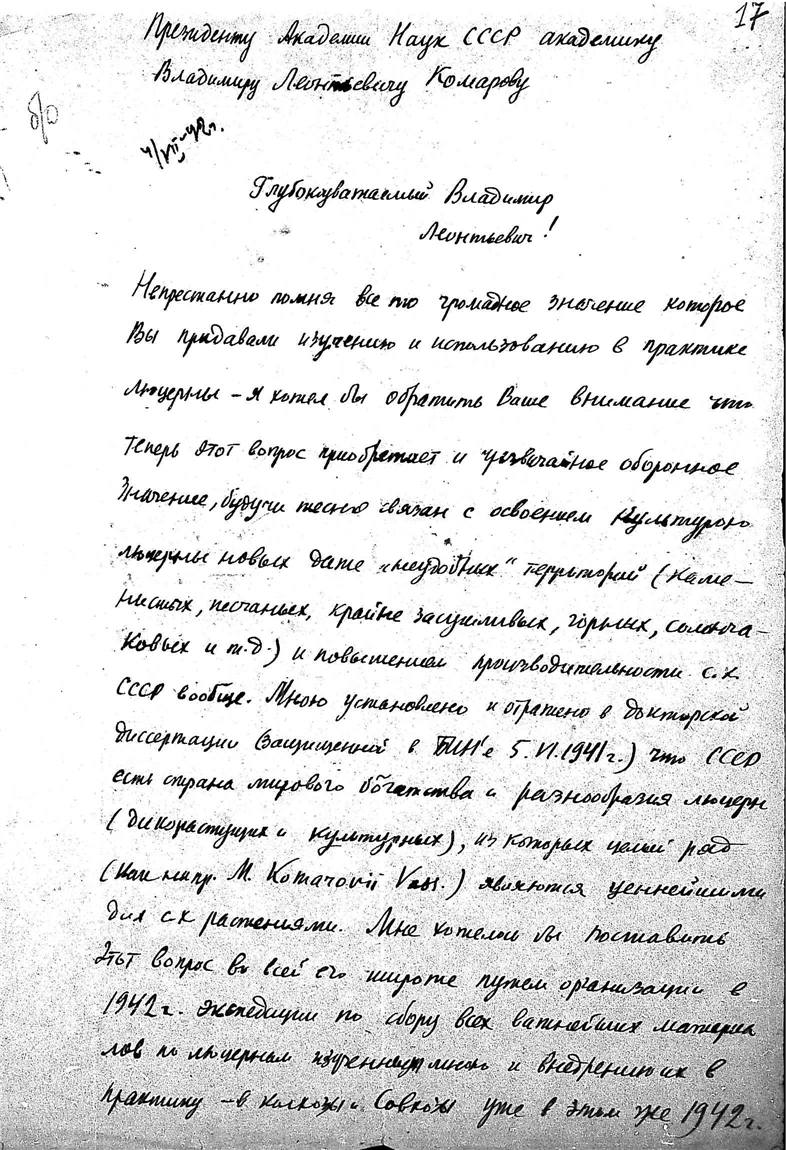 17
Президенту Академии Наук СССР академику
Владимиру Леонтьевичу Комарову
б/о
4/VII-42г.
Глубокоуважаемый Владимир
Леонтьевич!
Непрестанно помня все то громадное значение которое
Вы придавали изучению и использованию в практике
люцерны – я хотел бы обратить Ваше внимание что
теперь этот вопрос приобретает и чрезвычайное оборонное
значение, будучи тесно связан с освоением культурою
люцерны новых даже „неудобных" территорий (каме–
нистых, песчаных, крайне засушливых, горных, солонча–
ковых и т.д.) и повышением производительности с.х
СССР вообще. Мною установлено и отражено в докторской
диссертации (защищенной в БИН'е 5.VI.1941г.) что СССР
есть страна мирового богатства и разнообразия люцерн
(дикорастущих и культурных), из которых целый ряд
(как напр. M. Komarovii Vass.) являются ценнейшими
для с.х растениями. Мне хотелось бы поставить
этот вопрос во всей его широте путем организации в
1942г. экспедиции по сбору всех важнейших материа
лов по люцернам изученным мною и внедрению их в
практику – в колхозы и Совхозы уже в этом же 1942г.